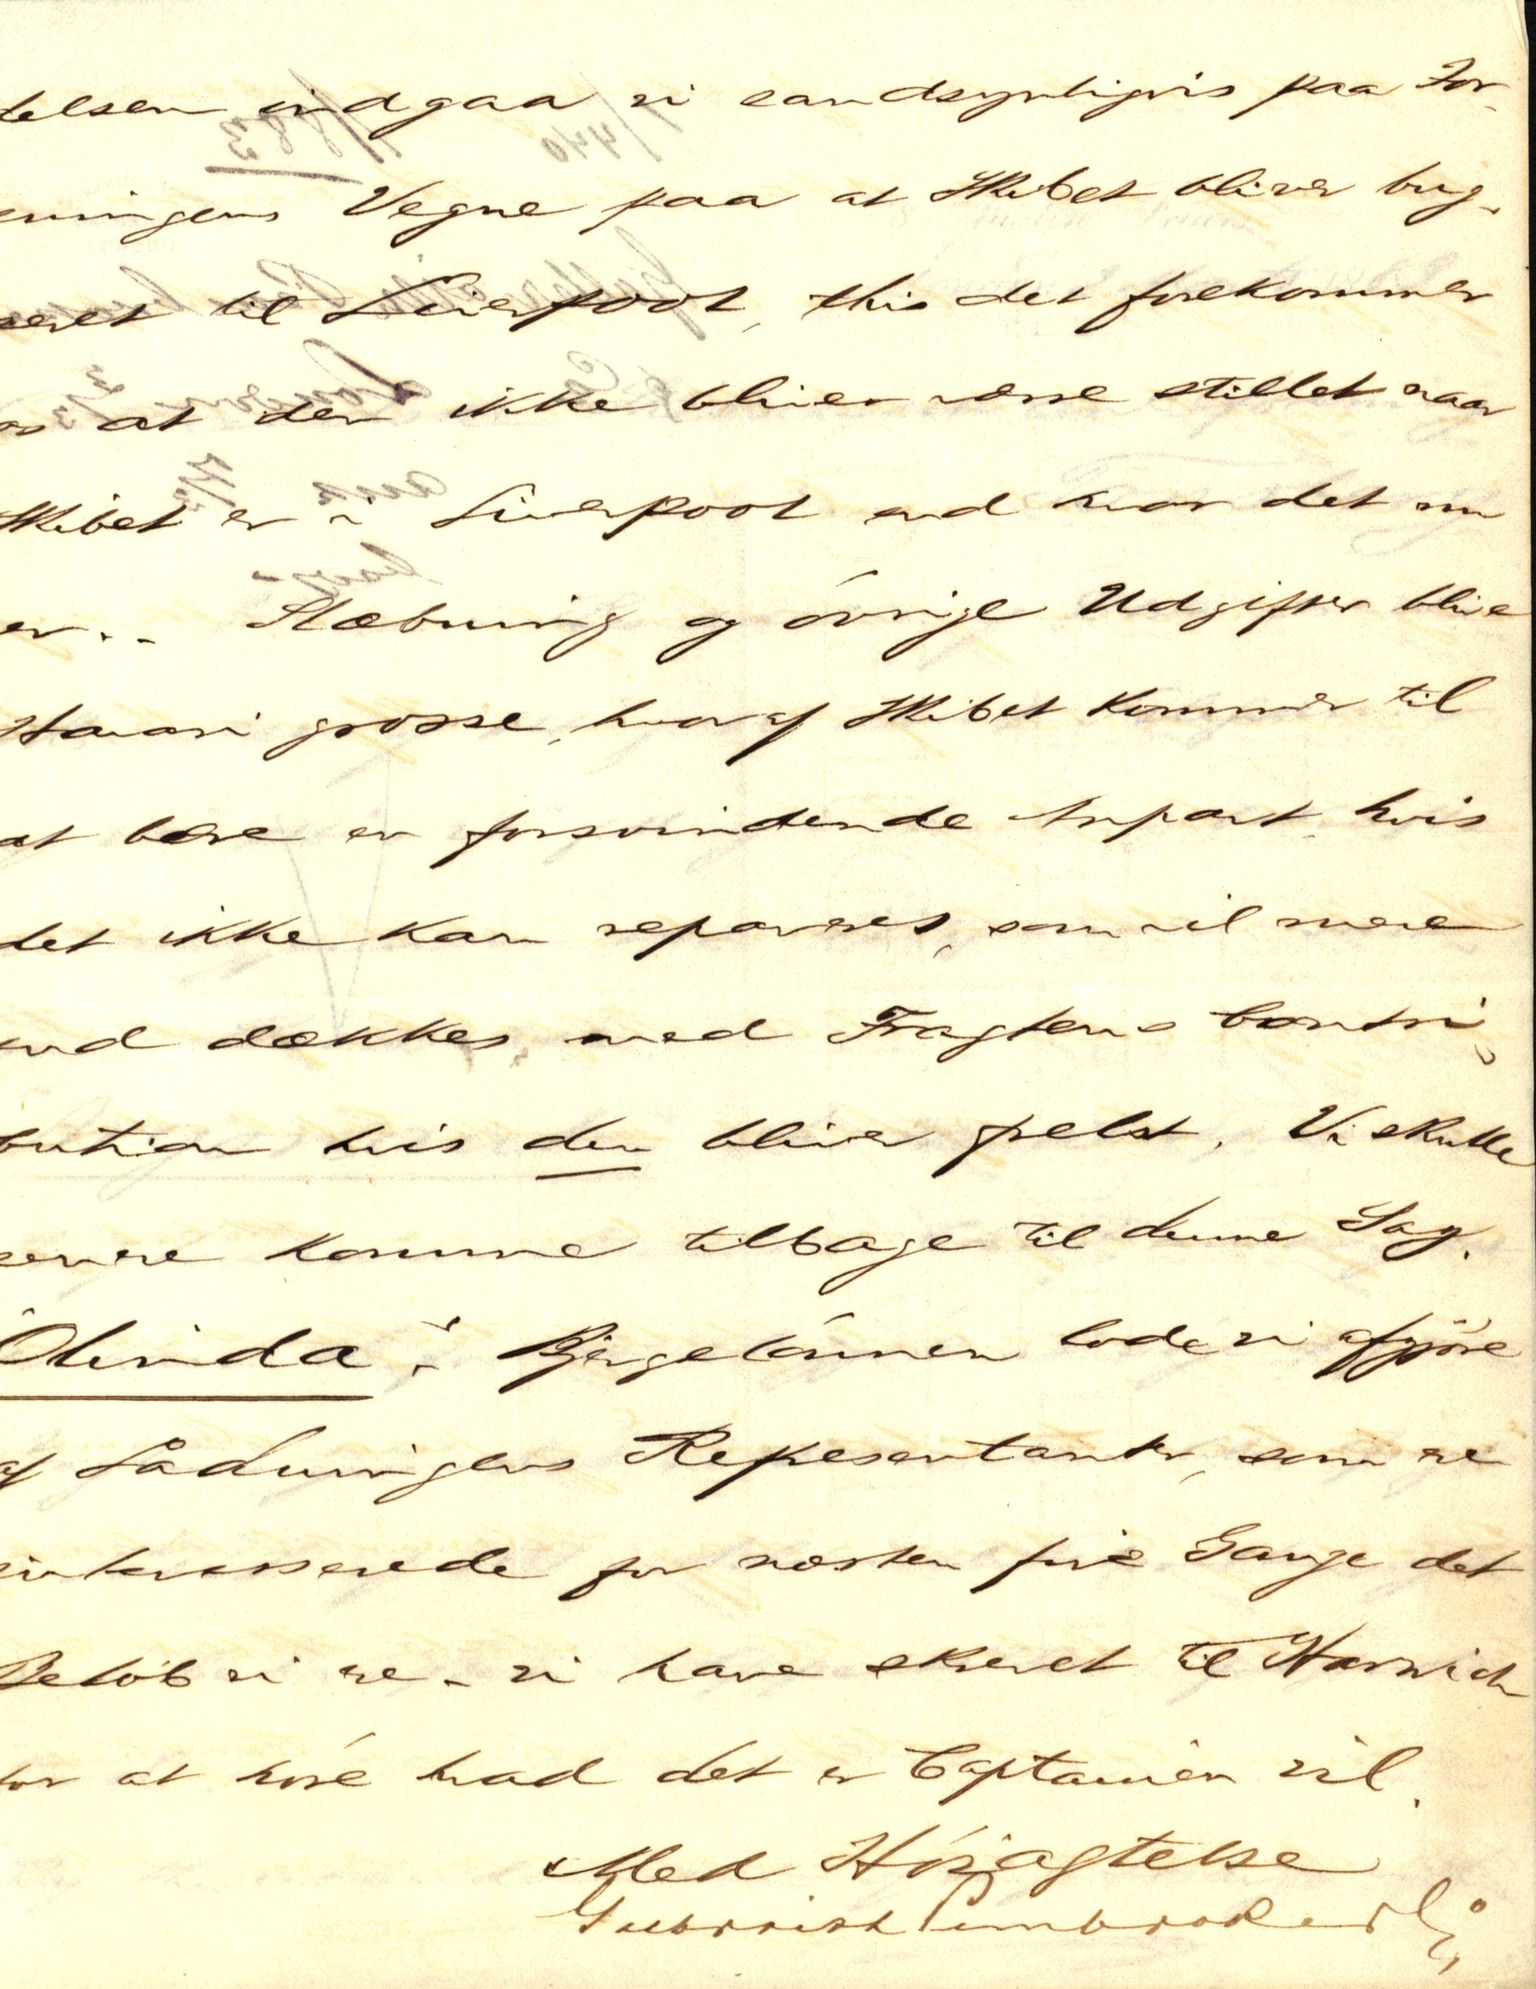 telsen indgaa vi sandsynligvis paa For-
eningens Vegne paa at Skibet bliver bug-
seret til Liverpool, thi det forekommer
os at den ikke bliver værre stillet naar
Skibet er i Liverpool end hvor det nu
er. - Slæbning og övrige Udgifter blive
Havari grosse, hvoraf Skibet kommer til
at bære en forsvindende Anpart, hvis
det ikke kan repareres, som vil mere
end dækkes med Fragtens Contri-
bution hvis den bliver frelst. Vi skulle
senere komme tilbage til denne Sag.
"Olinda": Bjergelönnen lode vi afgjöre
af Ladningens Repesentanter, som ere
interesserede for næsten fire Gange det
Belöb vi ere - vi have skrevet til Harwich
for at höre hvad det er Captainen vil.
Med Höiagtelse
Gulbrish Pembroke